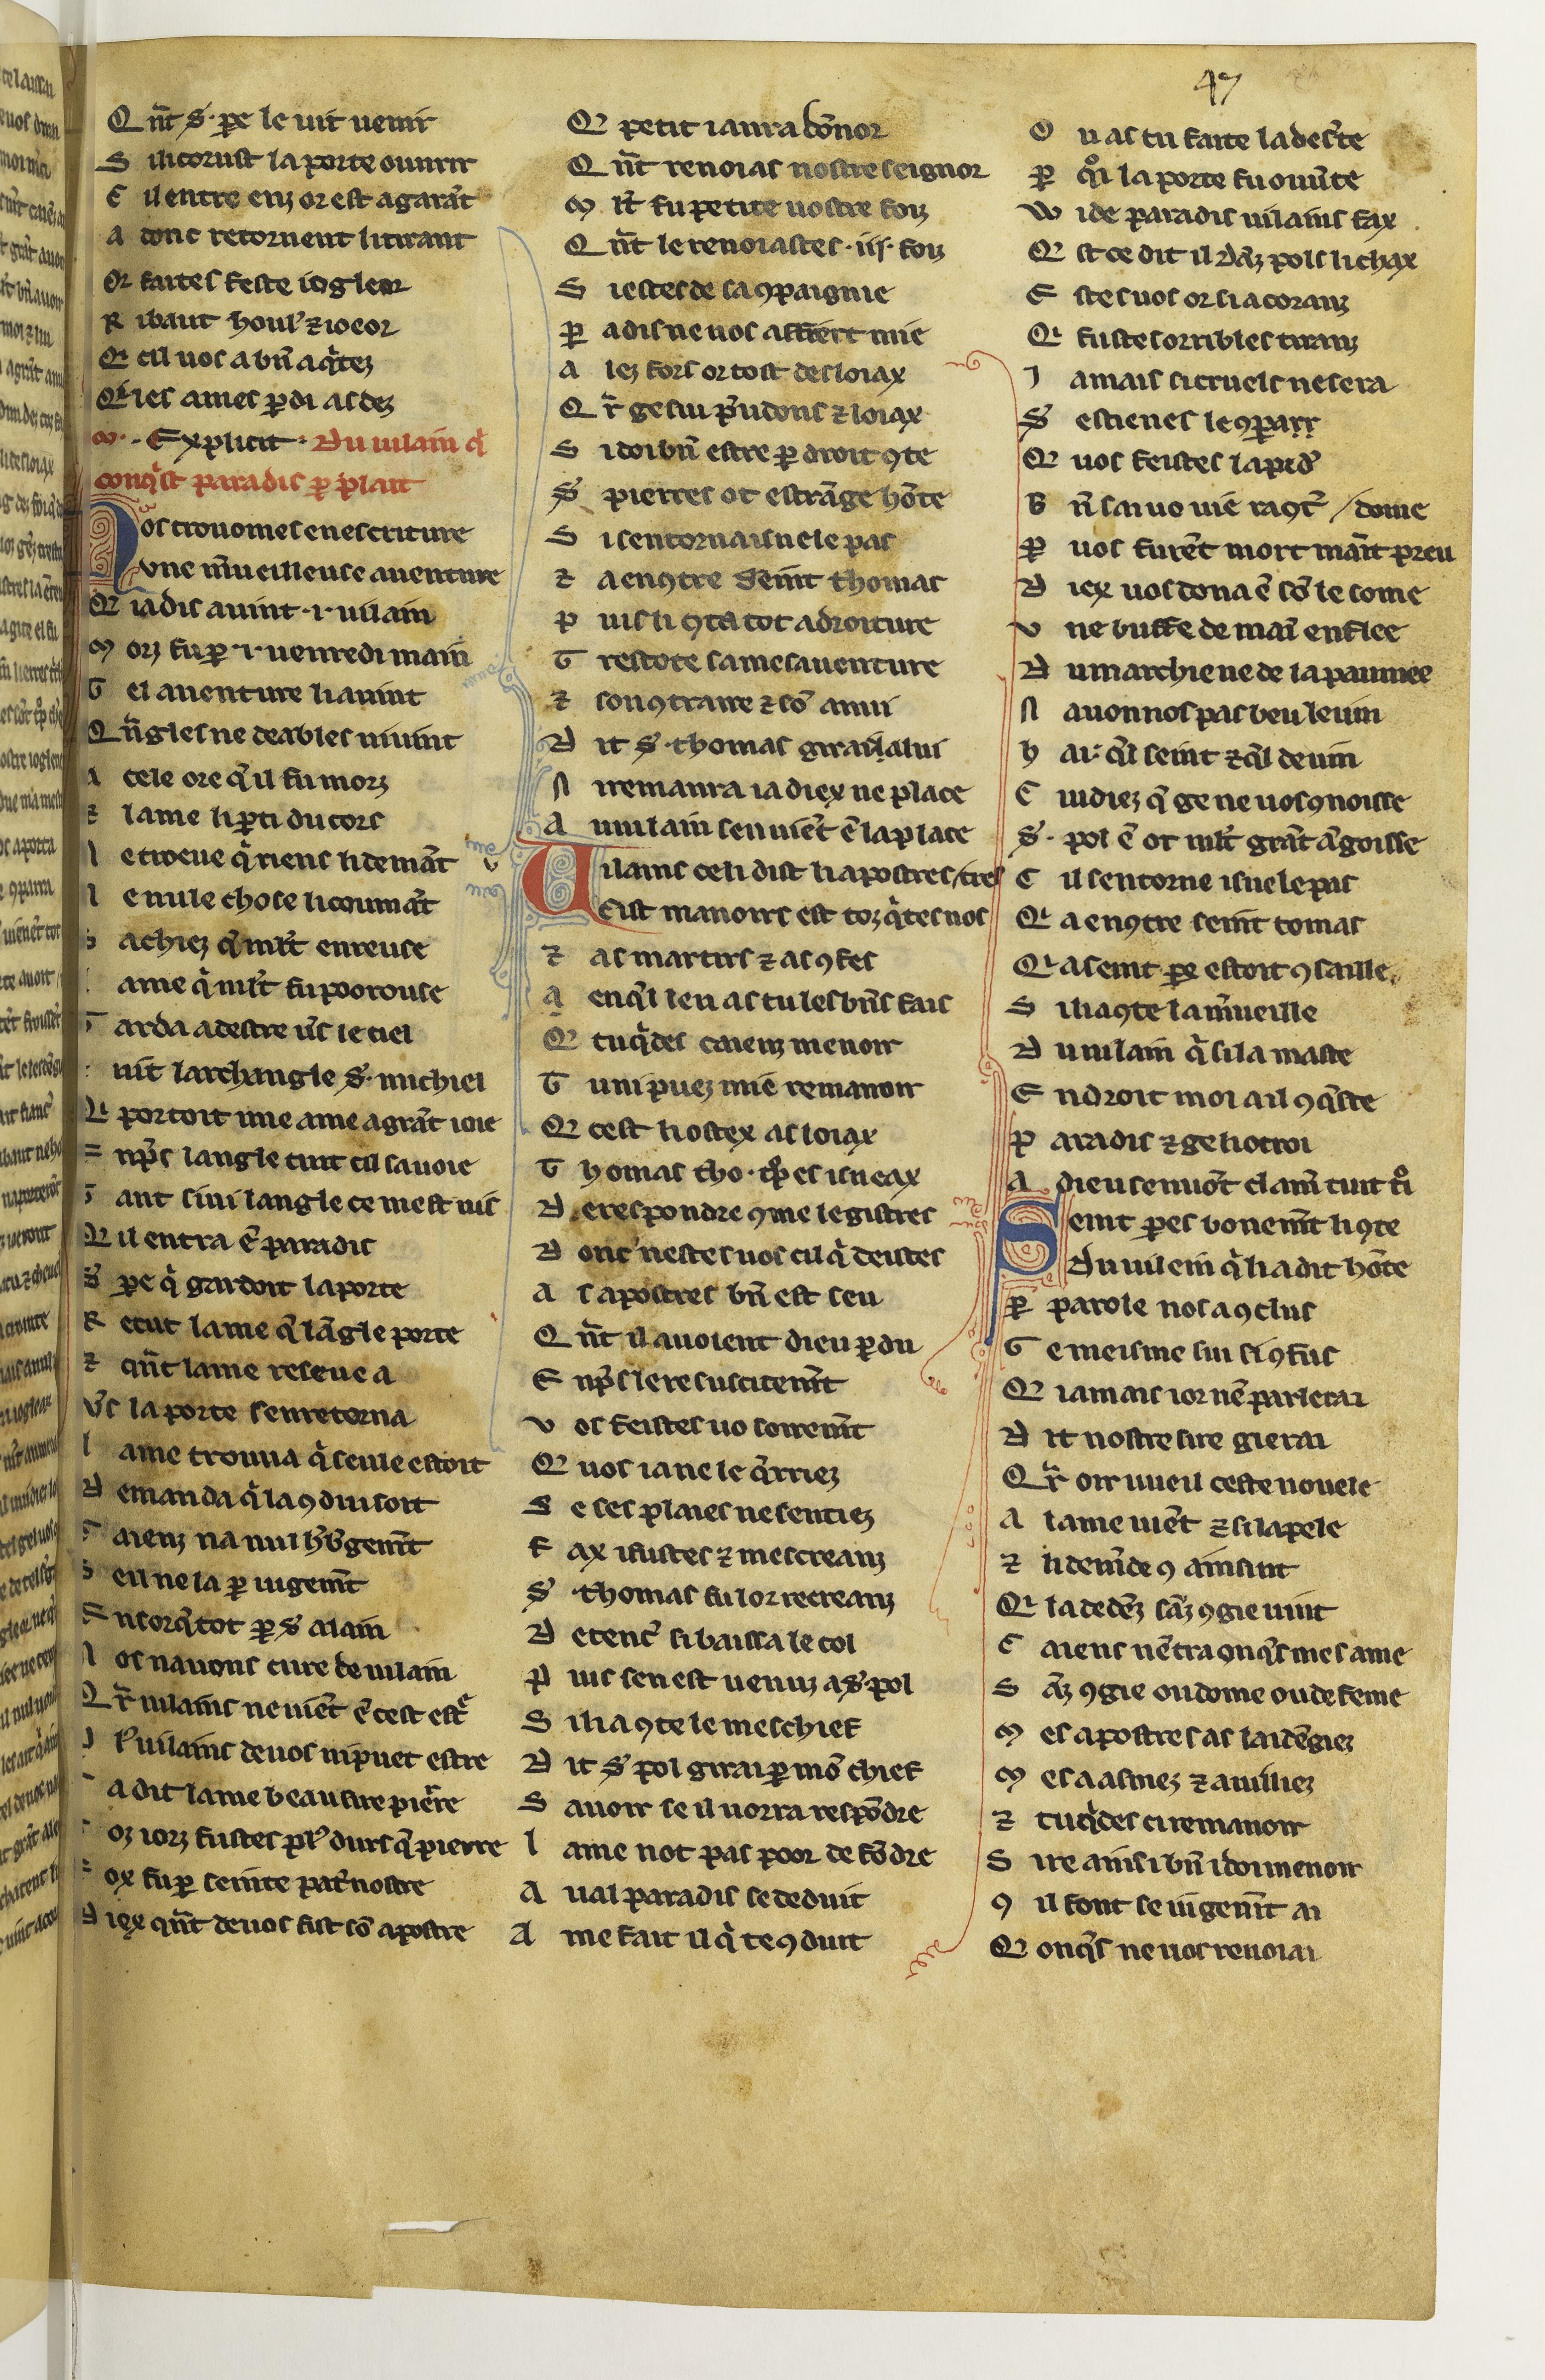 47
Q n̄t .S. ꝑe le uit uenir
S ili corust la porte ouurir
C il entre enz or est a garāt
A donc retornent li tirant
Or faites feste iogleor
R ibaut houl' ⁊ ioeor
Q cil uos a bn̄ aqͥtez
Qͥ les ames ꝑdi as dez
Explicit. Du uilain qͥ
conqͥst paradis ꝑ plait
Nos trouomes en escriture
Vne mͣueilleuse auenture
Q iadis auint .i. uilain
M orz fu ꝑ .i. uenredi main
T el auenture li auint
Qͥ angles ne deables ni uint
A cele ore qͥl fu morz
⁊ lame li ꝑti du cors
N e troeue qͥ riens li demāt
N e nule chose li coumāt
S achiez qͥ ml't enreuse
L ame qͥ ml't fu poorouse
G arda a destre u's le ciel
S uit larchangle .S. michiel
Q portoit une ame a grāt ioie
E np̄s langle tint cil sa uoie
T ant siui langle ce mest uis
Q il entra ē paradis
S. ꝑe qͥ gardoit la porte
R ecut lame qͥ lāgle porte
⁊ qn̄t lame receue a
V's la porte sen retorna
L ame trouua qͥ seule estoit
D emanda qͥ la ꝯduisoit
C aienz na nul h'b'gemēt
S eil ne la ꝑ iugemēt
E nsorqͥtot ꝑ .S. alain
N os nauons cure de uilain
Qͬ uilains ne uiēt ē cest est'
P l' uilains de uos ni puet estre
C a dit lame beau sire pierre
T oz iorz fustes pl' durs qͥ pierre
F ox fu ꝑ seinte patͤnostre
D iex qn̄t de uos fist sō apostre
Q petit i aura dōnor
Q n̄t renoias nostre seignor
M l't fu petite uostre foiz
Q n̄t le renoiastes .iii. foiz
S i estes de sa ꝯpaignie
P adis ne uos affiert mie
A lez fors or tost desloiax
Qͬ ge sui p̄udons ⁊ loiax
S i doi bn̄ estre ꝑ droit ꝯte
S. pierres ot estrāge hōte
S i sen torna isnele pas
⁊ a enꝯtre seint thomas
P uis li ꝯta tot a droiture
T restote sa mesauenture
⁊ son ꝯtraire ⁊ sō anui
D it .S. thomas girai a lui
N i remanra ia diex ne place
A u uilain sen uiēt ē la place
Vilains ce li dist li apostres
Cist manoirs est toz qͥtes nos
⁊ as martirs ⁊ as ꝯfes
A enqͥl leu as tu les bn̄s fais
Q tu qͥdes caienz menoir
T u ni puez mie remanoir
Q cest li ostex as loiax
T homas tho. tp̄ es isneax
D e respondre ꝯme legistres
D onc nestes uos cil qͥ deistes
A s apostres bn̄ est seu
Q n̄t il auoient dieu ꝑdu
E np̄s le resuscitemēt
V os feistes uo sorremēt
Q uos ia ne le qͬriez
S e ses plaies ne sentiez
F ax i fustes ⁊ mescreanz
S. thomas fu lor recreanz
D e tenc' si baissa le col
P uis sen est uenuz a .S. pol
S i li a ꝯte le meschief
D it .S. pol girai ꝑ mō chief
S auoir se il uorra respōdre
L ame not pas poor de fōdre
A ual paradis se deduit
A me fait il qͥ te ꝯduit
O u as tu faite la des'te
P qͦi la porte fu ouu'te
W ide paradis uilains fax
Q st ce dit il dāz pols li chax
E stes uos or si acoranz
Q fustes orribles tiranz
J amais si cruels ne sera
S. estienes le ꝯparr
Q uos feistes lapid'
B n̄ sai uo uie raꝯt' / dome
P uos furēt mort maīt preu
D iex uos dona ē sō le some
V ne buffe de maī enflee
D u marchie ne de la paumee
N auon nos pas beu le uin
H ai: qͥl seint ⁊ qͥl deuin
C uidiez qͥ ge ne uos ꝯnoisse
S. pol ē ot ml't grāt āgoisse
C il sen torne isnele pas
Q a enꝯtre seint tomas
Q a seint ꝑe estoit ꝯsaille
S i li a ꝯte la mͣueille
D u uilain qͥ si la maste
E ndroit moi a il ꝯqͥste
P aradis ⁊ ge li otroi
A dieu se uōt clam̄ tuit t'i
Seint ꝑes bonemēt li ꝯte
Du uilein qͥ li a dit hōte
P parole nos a ꝯclus
G e meisme sui si ꝯfus
Q iamais ior nē parlerai
D it nostre sire gi erai
Qͬ oir uueil ceste nouele
A lame uiēt ⁊ si lapele
⁊ li demāde ꝯ ainsint
Q la dedēz sāz ꝯgie uint
C aiens nētra onqͥs mes ame
S āz ꝯgie ou dome ou de feme
M es apostres as laidēgiez
M esaasmez ⁊ auilliez
⁊ tu qͥdes ci remanoir
S ire ainsi bn̄ i doi menoir
ꝯ il font se iugemēt ai
Q onqͥs ne uos renoiai